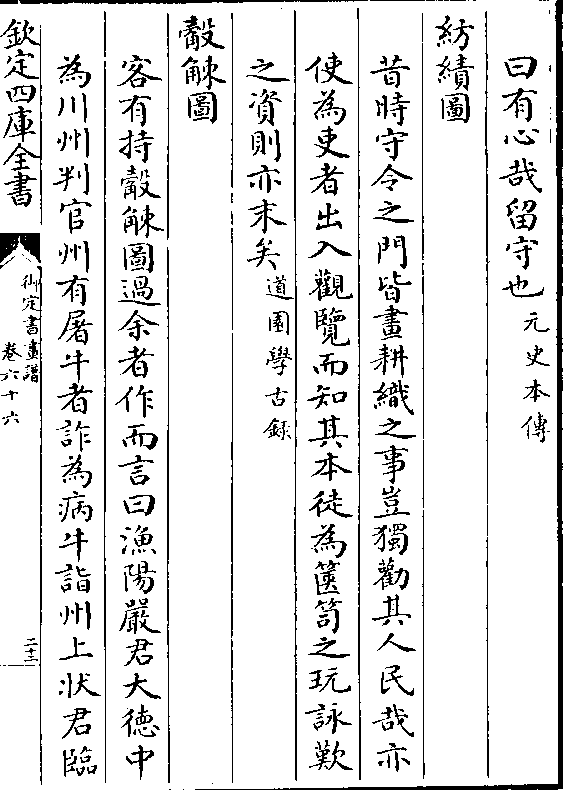 曰有心哉留守也元史本傳
紡績圖
昔時守令之門皆畫耕織之事豈獨勸其人民哉亦
使為吏者出入觀覽而知其本徒為篋笥之玩詠歎
之資則亦末矣道園學古録
觳觫圖
客有持觳觫圖過余者作而言曰漁陽嚴君大德中
為川州判官州有屠牛者詐為病牛詣州上狀君臨
欽定四庫全書
御定書畫譜
卷六十六
二十三